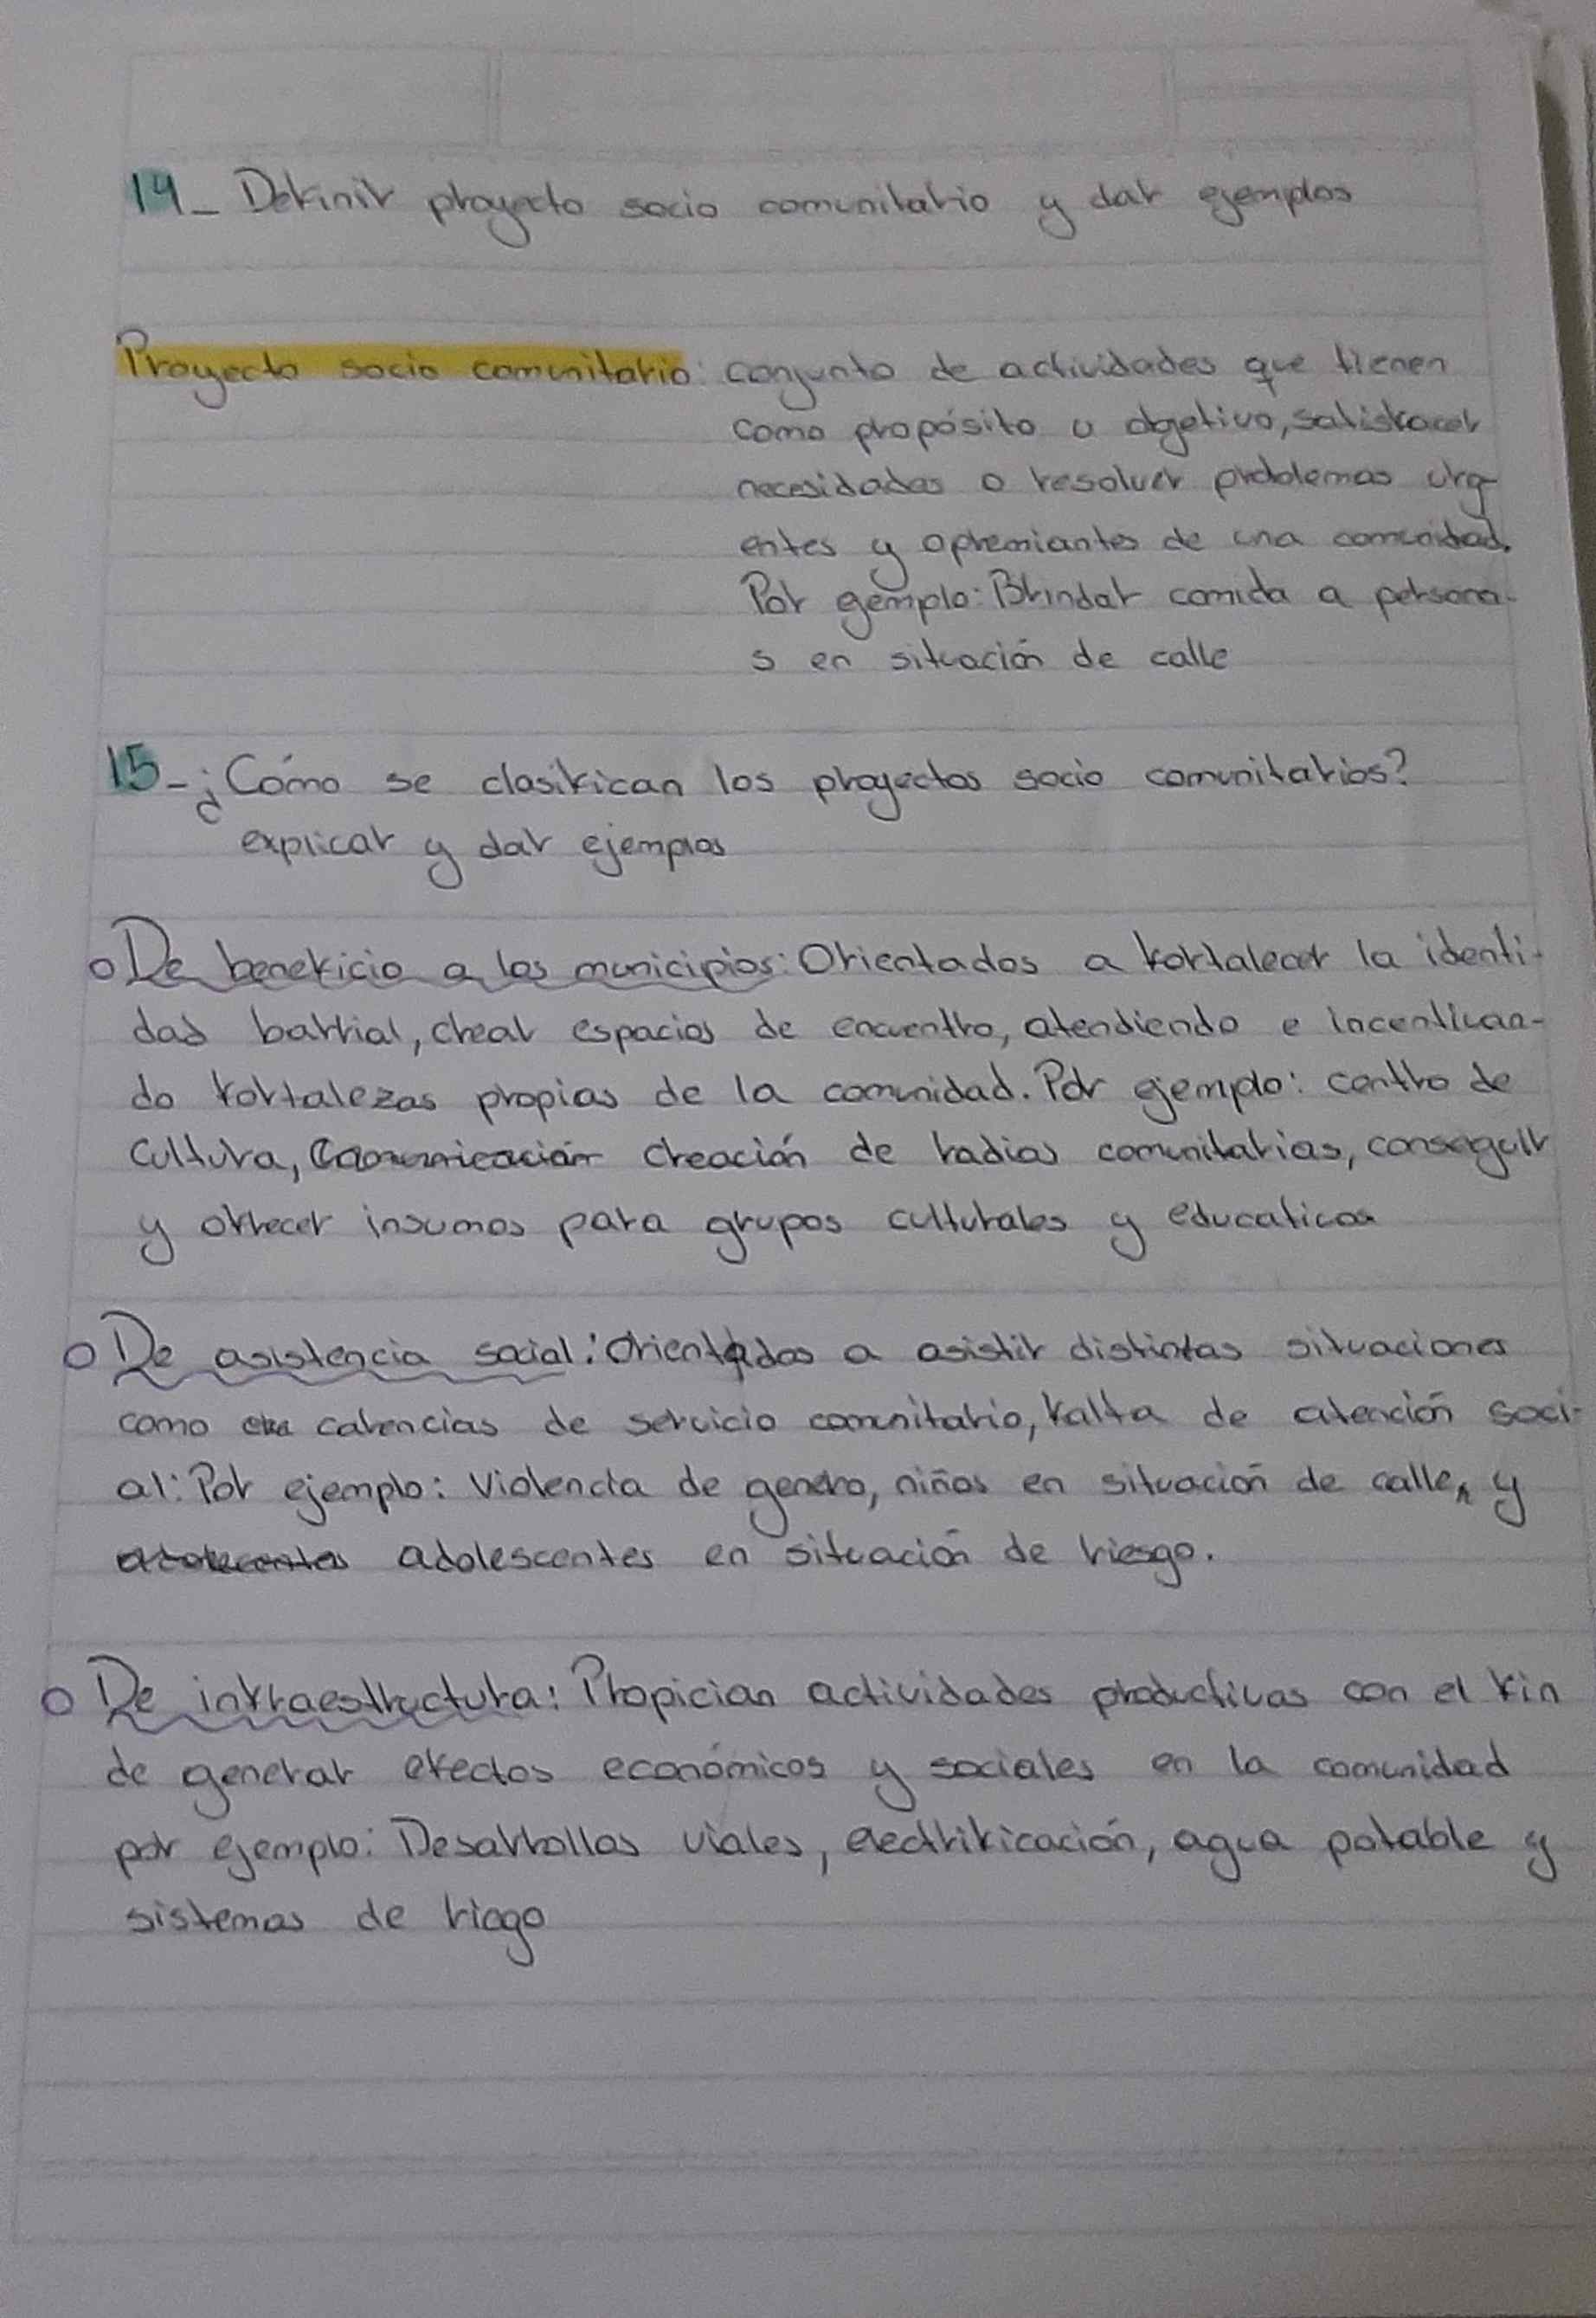 14_ Definir proyecto socio comunitario y dar ejemplos
Proyecto socio comunitario: conjunto de actividades que tienen
como propósito u objetivo, satisfacer
necesidades o resolver problemas urg
entes y apremiantes de una comunidad.
Por ejemplo: Brindar comida a persona-
s en situación de calle
15-¿Cómo se clasifican los proyectos socio comunitarios?
explicar y dar ejemplos
o De beneficio a los municipios: Orientados a fortalecer la identi-
dad barrial, crear espacios de encuentro, atendiendo e incentivan-
do fortalezas propias de la comunidad. Por ejemplo: centro de
cultura, Comunicación creación de radios comunitarias, conseguir
y ofrecer insumos para grupos culturales y educativos
o De asistencia social: Orientados a asistir distintas situaciones
como carencias de servicio comunitario, falta de atención soci-
al: Por ejemplo: Violencia de genero, niños en situación de calle, y
adolescentes en situación de riesgo.
o De infraestructura: Propician actividades productivas con el fin
de generar efectos económicos y sociales en la comunidad
por ejemplo: Desarrollos viales, electrificación, agua potable y
sistemas de riego